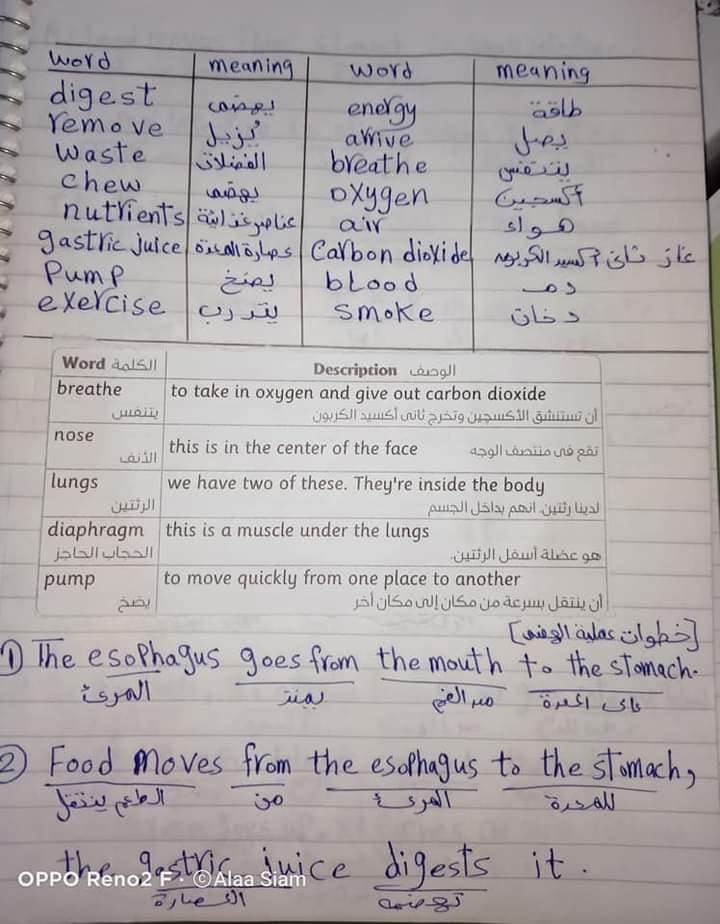 word meaning word meaning
digest يهضم energy طاقة
remove يُزيل arrive يصل
waste الفضلات breathe يتنفس
chew يهضم oxygen أكسجين
nutrients عناصر غذائية air هواء
gastric juice عصارة المعدة Carbon dioxide غاز ثاني أكسيد الكربون
Pump يضخ blood دم
exercise يتدرب smoke دخان
Word الكلمة Description الوصف
breathe to take in oxygen and give out carbon dioxide
يتنفس أن تستنشق الأكسجين وتخرج ثانى أكسيد الكربون
nose this is in the center of the face تقع فى منتصف الوجه
الأنف
lungs we have two of these. They're inside the body
الرئتين لدينا رئتين. انهم بداخل الجسم
diaphragm this is a muscle under the lungs
الحجاب الحاجز هو عضلة أسفل الرئتين.
pump to move quickly from one place to another
يضخ أن ينتقل بسرعة من مكان إلى مكان أخر
[خطوات عملية الهضم]
① The esophagus goes from the mouth to the stomach.
المرئ يمتد من الفم الى المعدة
② Food moves from the esophagus to the stomach,
الطعام ينتقل من المرئ للمعدة
the gastric juice digests it.
العصارة تهضمه
OPPO Reno2 F · ©Alaa Siam